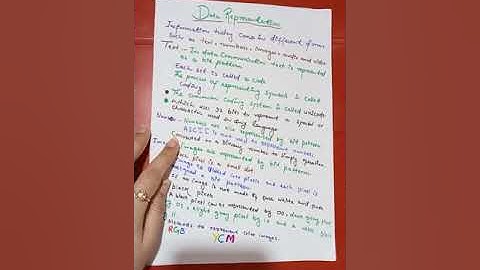 Data Representation
Information today comes in different forms
such as text, numbers, images, audio and video
Text - In data communication text is represented
as a bit pattern
Each set is called a code
The process of representing symbols is called
coding
The common coding system is called unicode
which uses 32 bits to represent a symbol or
character used in any language
Numbers are also represented by bit pattern
ASCII is not used to represent numbers,
Converted to a binary number to simply
Images are represented by bit patterns
pixel is a small dot
image is divided into pixels and each pixel is
assigned a bit pattern
an image is not made of pure white and pure
black pixels
A black pixel can be represented by 00, dark gray pixel
by 01, light gray pixel by 10 and a white pixel
by 11
Methods to represent color images.
RGB YCM